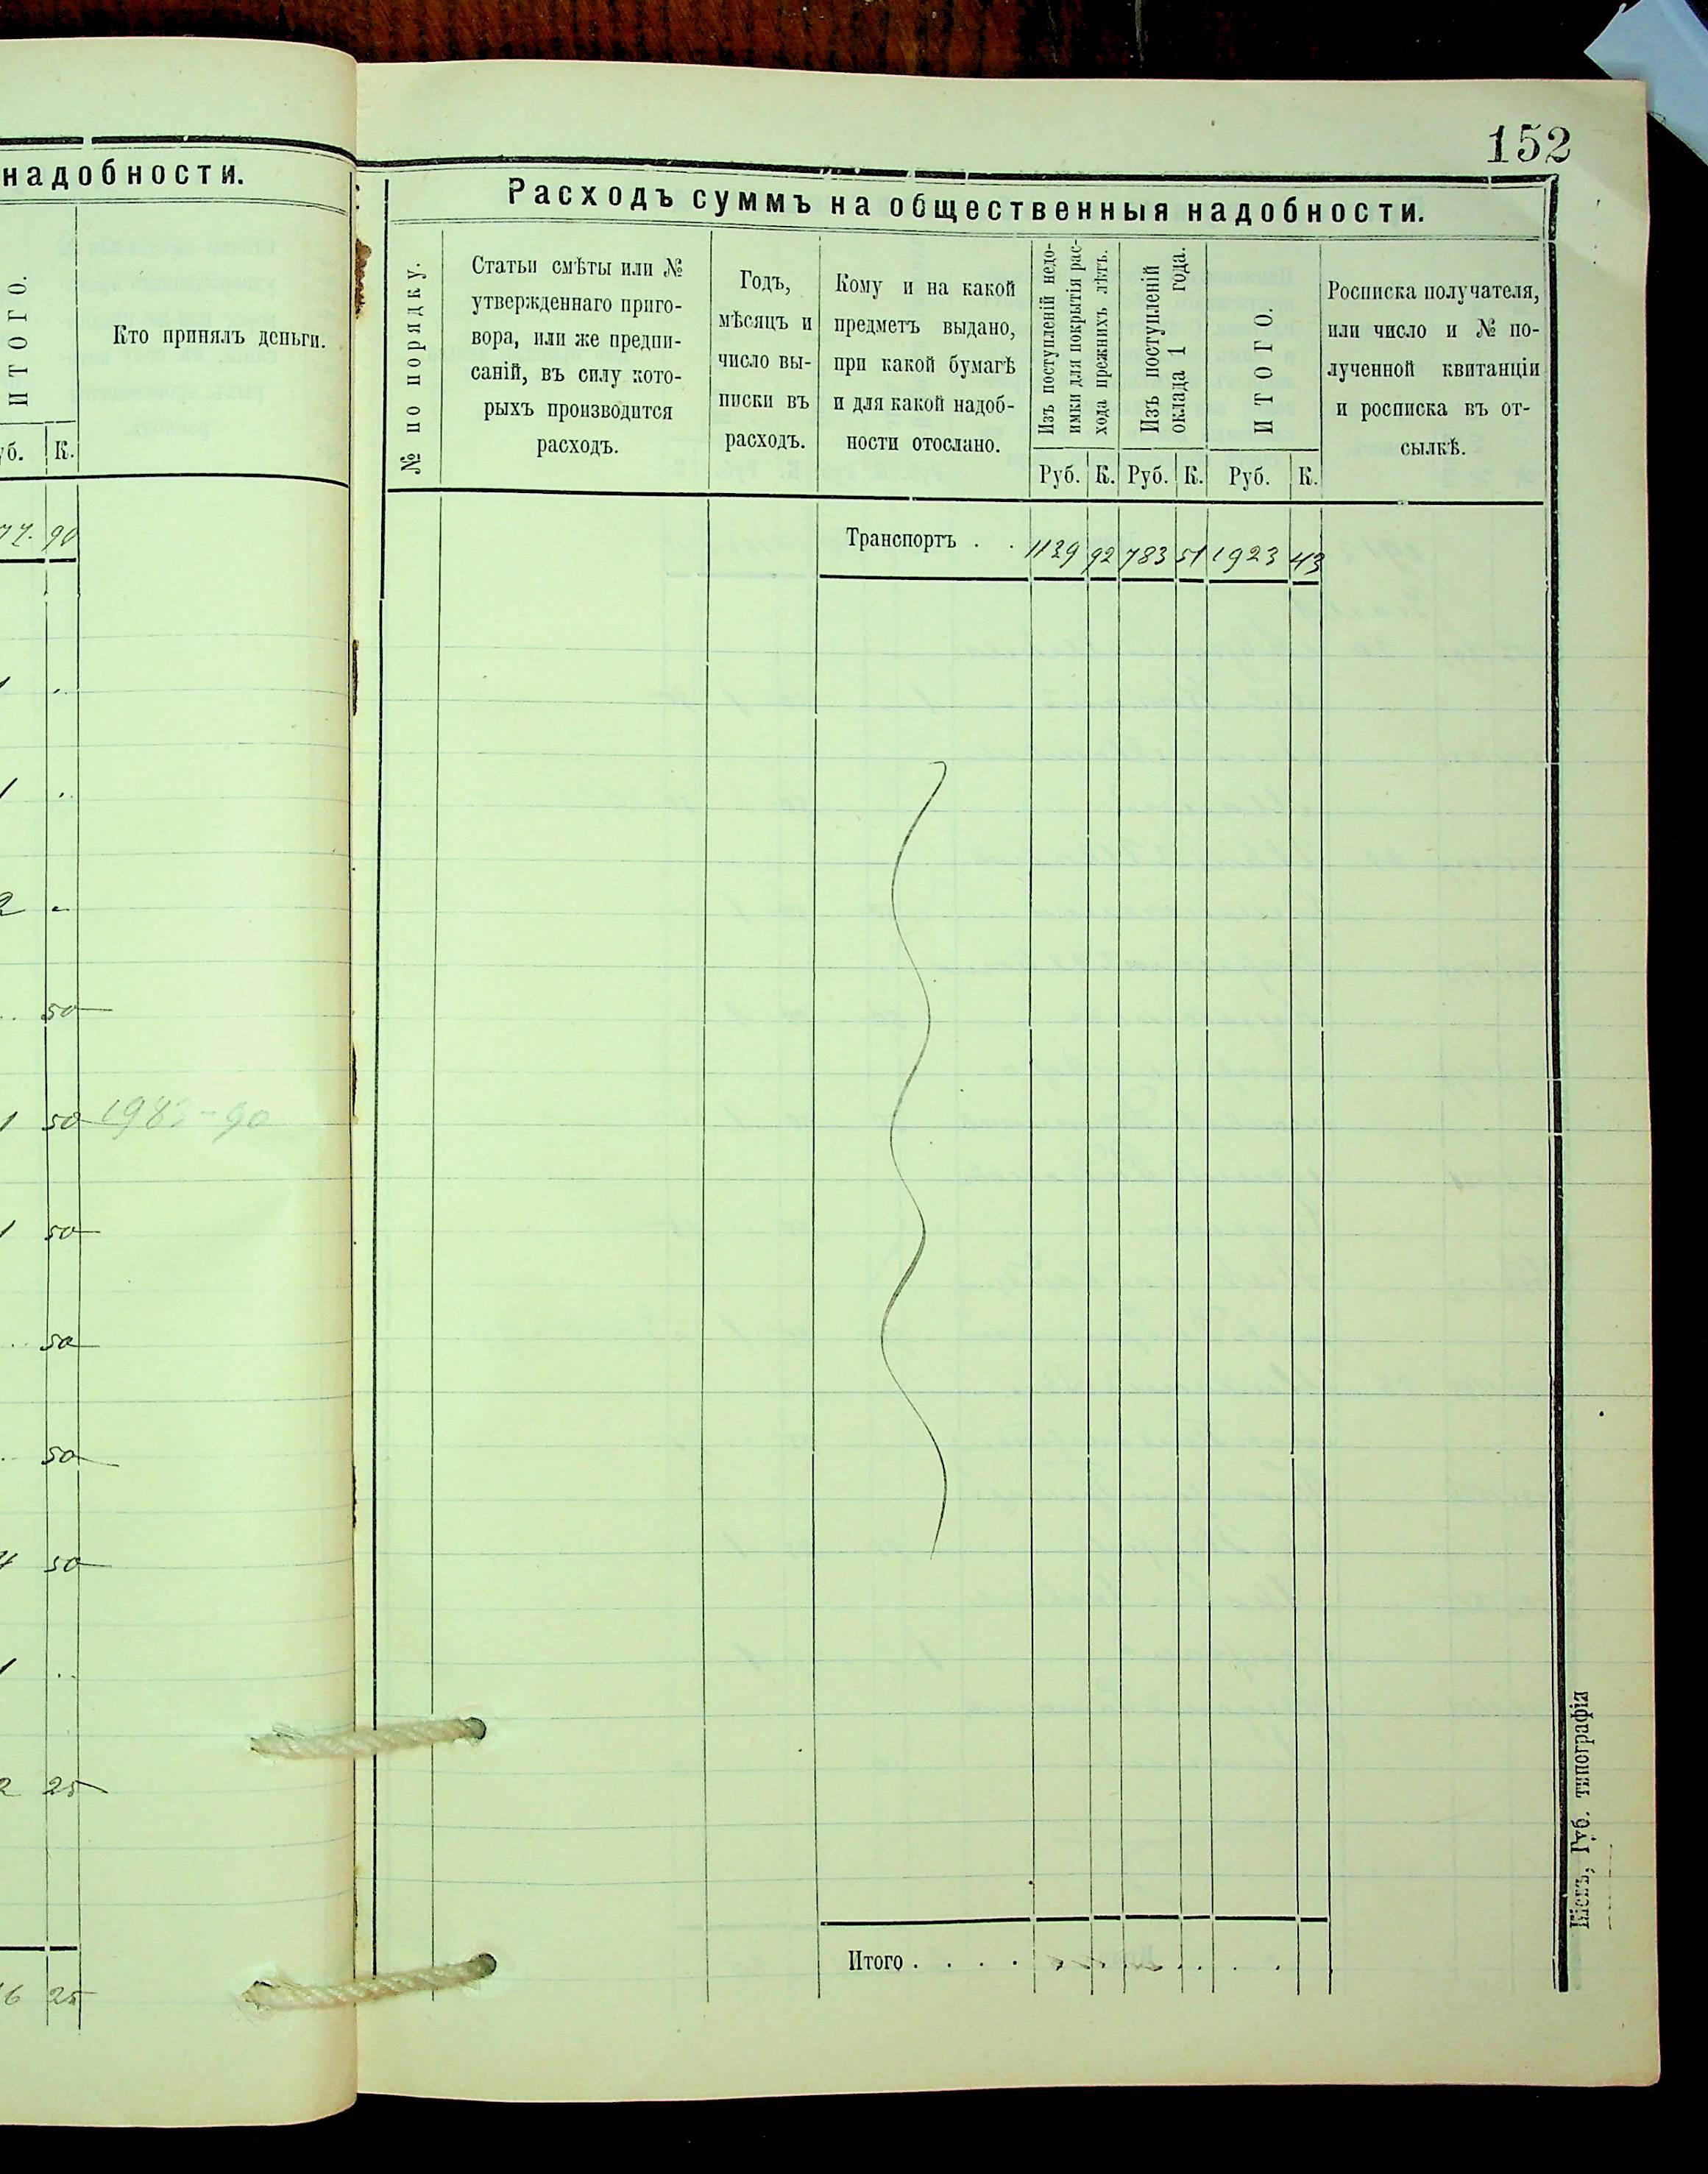 надобности.
ИТОГО.
Кто принялъ деньги.
К.
90
50
1 50
1983-90
1 50
50
50
4 50
1
2 25
6 25
152
Расходъ суммъ на общественныя надобности.
№ по порядку.
Статьи смѣты или №
утвержденнаго приго-
вора, или же предпи-
саній, въ силу кото-
рыхъ производится
расходъ.
Годъ,
мѣсяцъ и
число вы-
писки въ
расходъ.
Кому и на какой
предметъ выдано,
при какой бумагѣ
и для какой надоб-
ности отослано.
Изъ поступленій недо-
имки для покрытія рас-
хода прежнихъ лѣтъ.
Изъ поступленій
оклада 1 года.
ИТОГО.
Росписка получателя,
или число и № по-
лученной квитанціи
и росписка въ от-
сылкѣ.
Руб. К. Руб. К. Руб. К.
Транспортъ . . 1139 92 783 51 1923 43
Итого . . . .
Губ. типографія